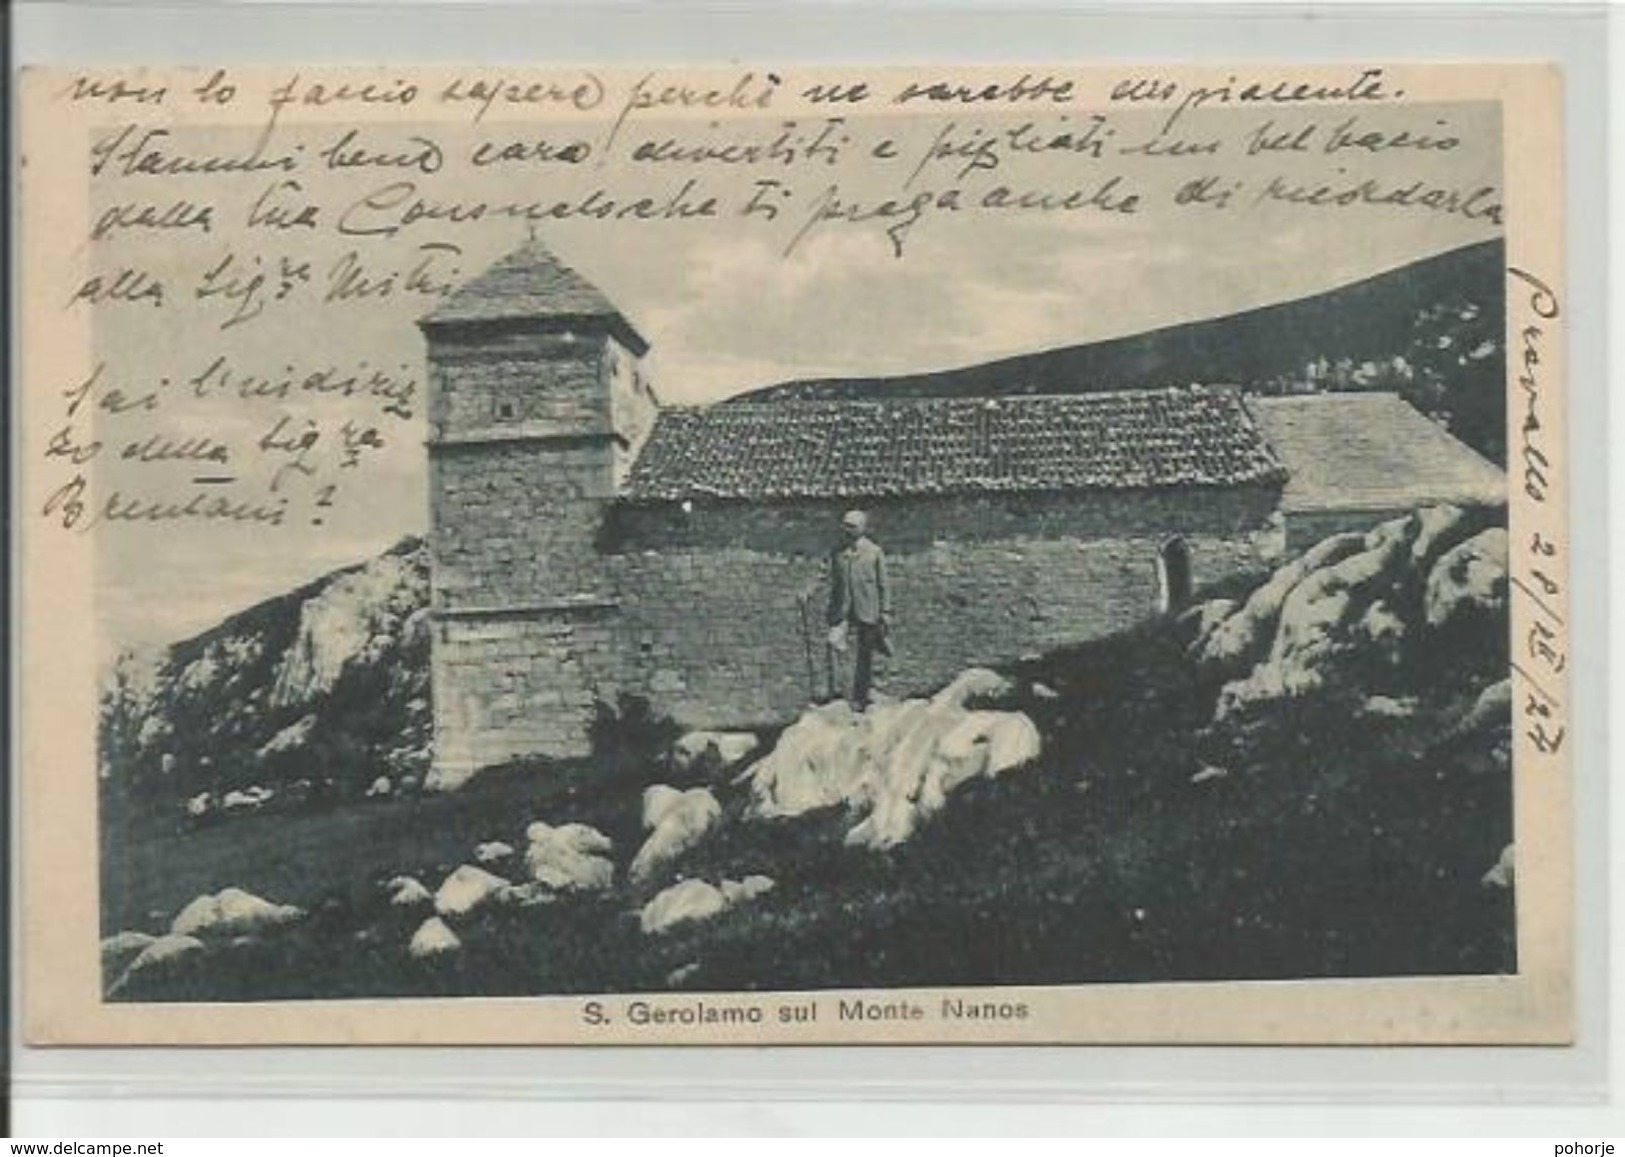 non lo faccio sapere perchè ne sarebbe dispiacente.
Stammi bene cara divertiti e pigliati un bel bacio
dalla tua che ti prega anche di ricordarla
alla Sig.ra Mitri
Sai l'indiriz
zo della Sig.ra
Brentani?
Prevallo 28/IX/27
S. Gerolamo sul Monte Nanos
www.delcampe.net
pohorje